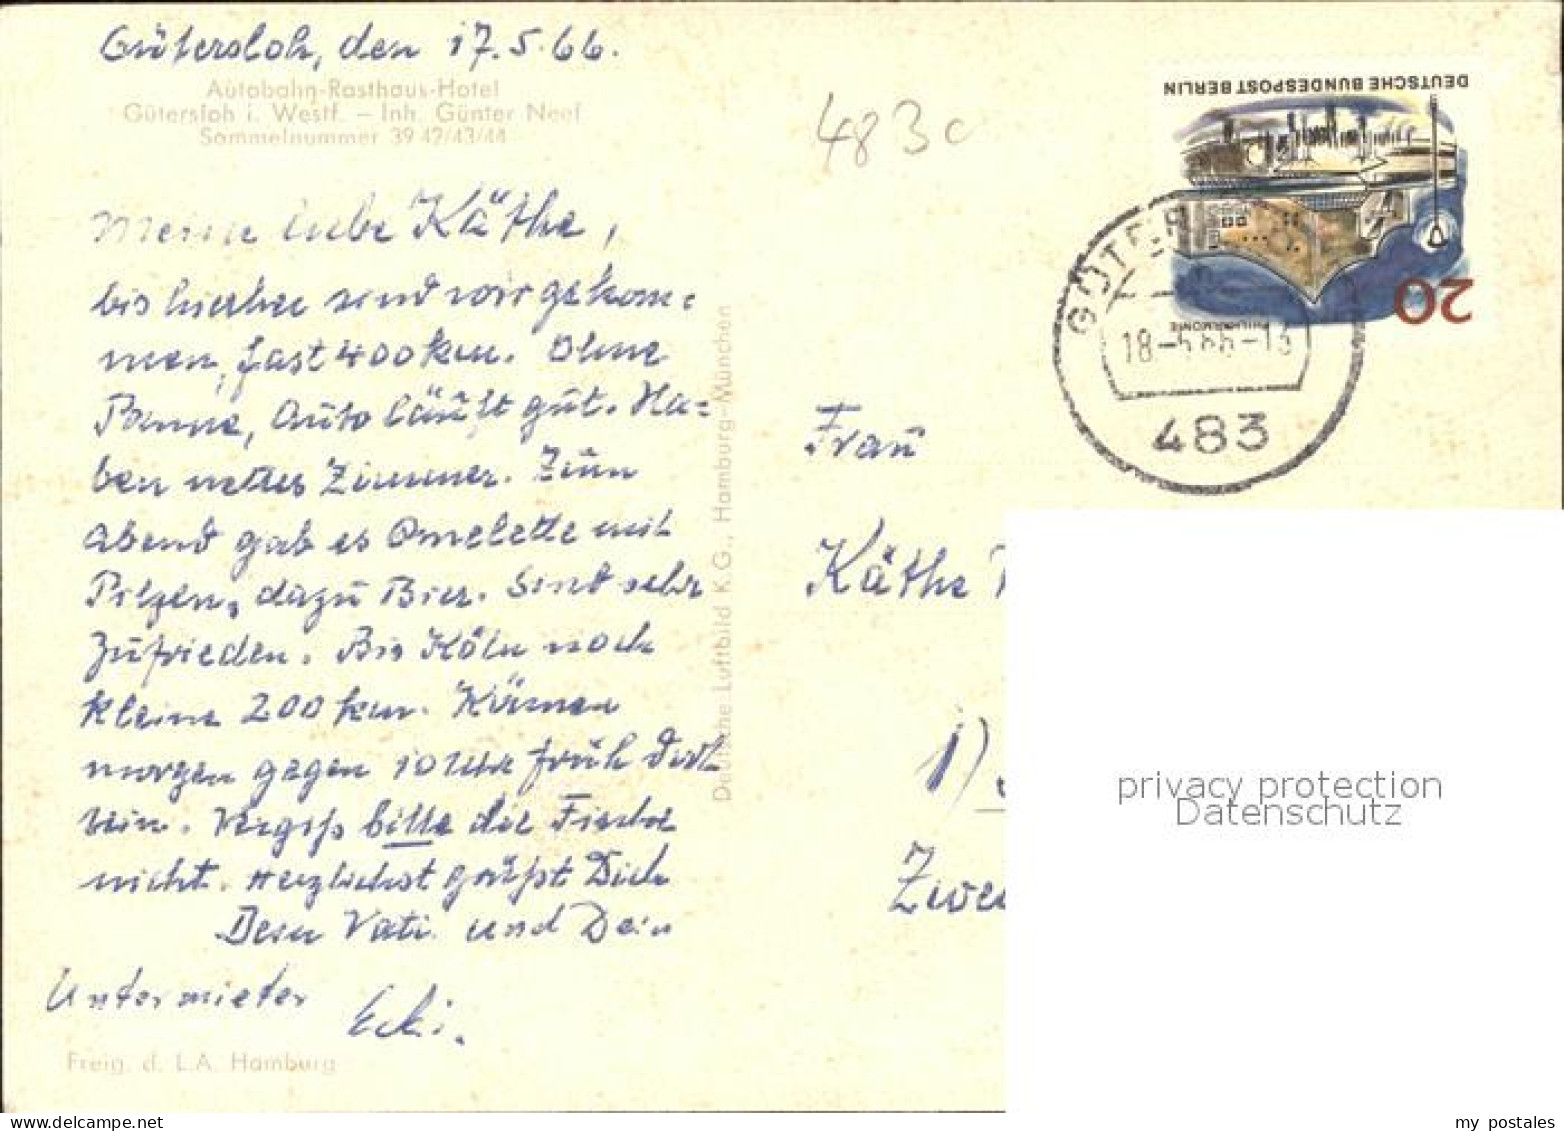 Gütersloh, den 17.5.66.
Autobahn-Rasthaus-Hotel
Gütersloh i. Westf. – Inh. Günter Neef
Sammelnummer 39 42/43/44
Meine liebe Käthe,
bis hierher sind wir gekom=
men, fast 400 km. Ohne
Panne, Auto läuft gut. Ha=
ben nettes Zimmer. Zum
Abend gab es Omelette mit
Pilzen, dazu Bier. Sind sehr
zufrieden. Bis Köln noch
kleine 200 km. Können
morgen gegen 10 Uhr früh dort
sein. Vergiß bitte die Fische
nicht. Herzlichst grüßt Dich
Dein Vati und Dein
Untermieter Ecki.
Freig. d. L.A. Hamburg
Deutsche Luftbild K.G., Hamburg-München
483c
DEUTSCHE BUNDESPOST BERLIN
20
PHILHARMONIE
18-5.66-13
483
Frau
Käthe
1)
privacy protection
Datenschutz
my postales